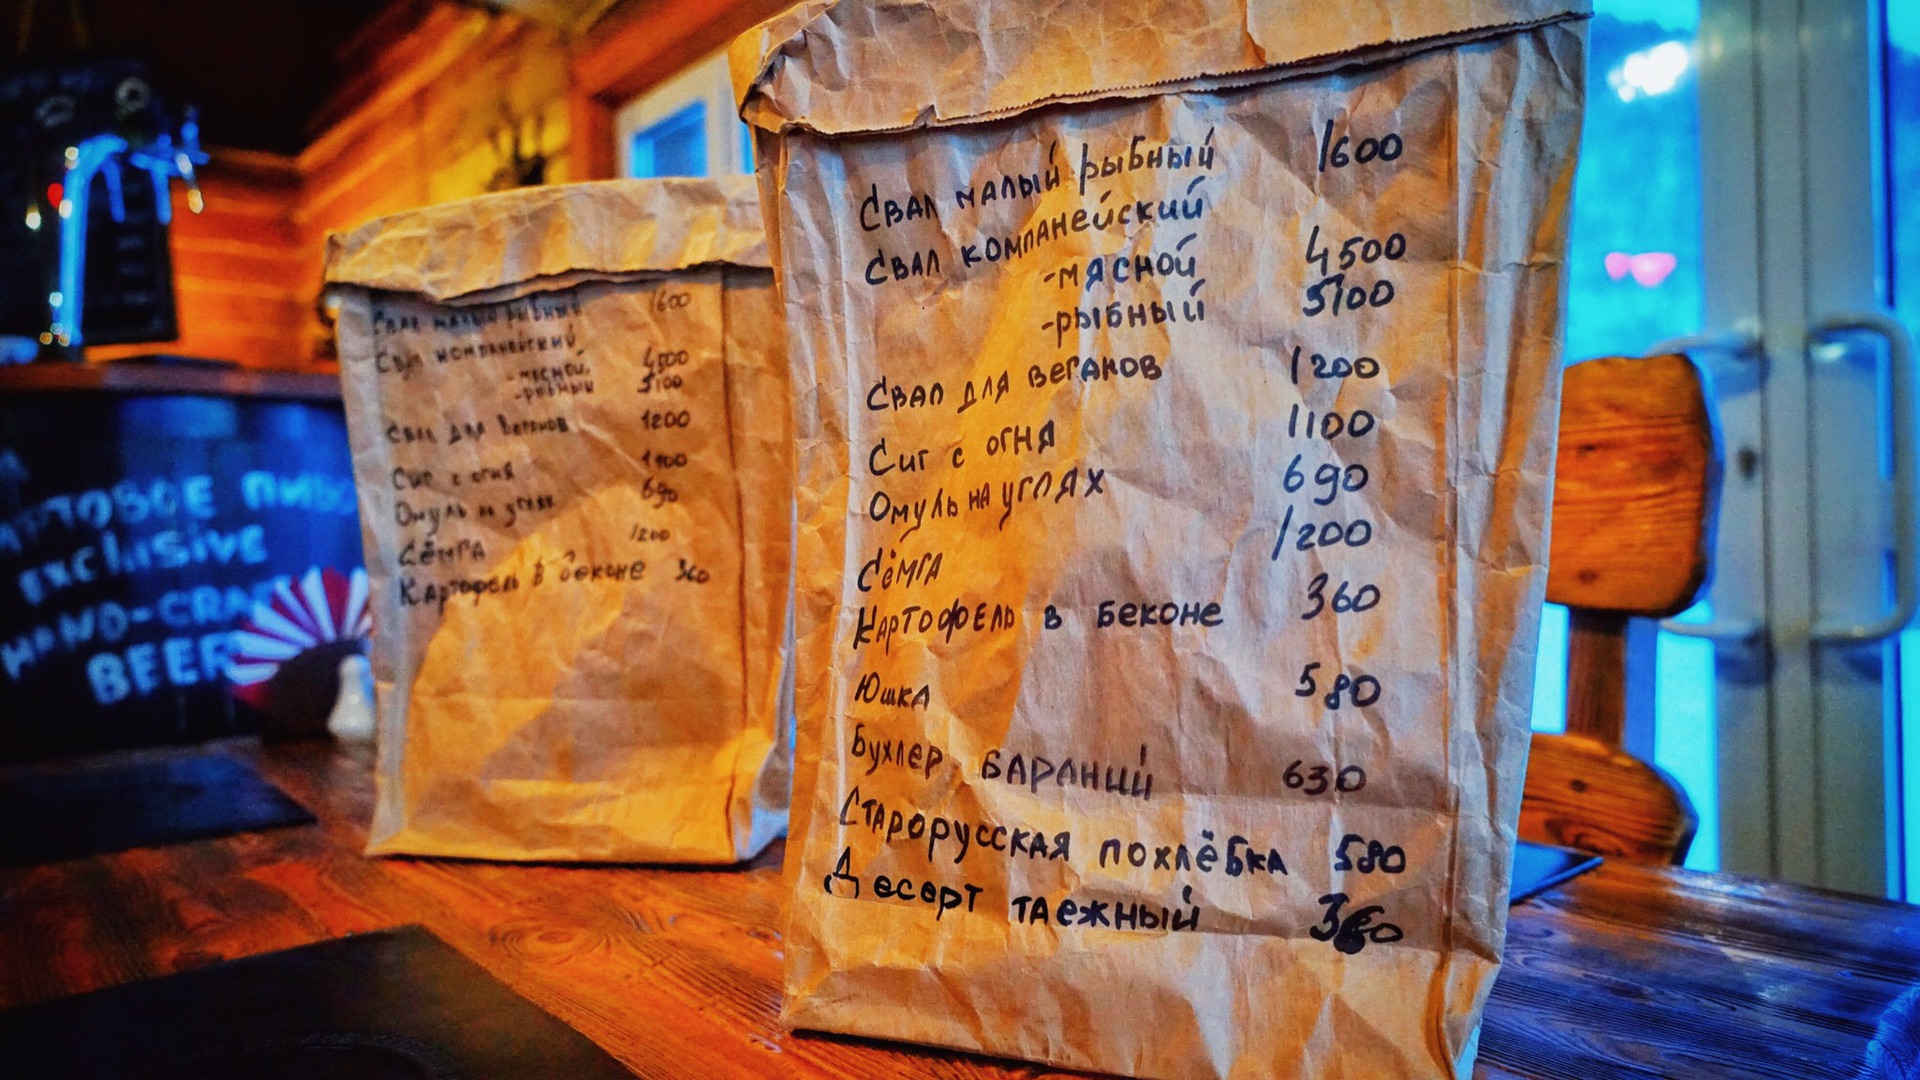 Свал малый рыбный 1600
Свал компанейский
-мясной 4500
-рыбный 5100
Свал для веганов 1200
Сиг с огня 1100
Омуль на углях 690
Сёмга 1200
Картофель в беконе 360
Юшка 580
Бухлер бараний 630
Старорусская похлёбка 580
Десерт таежный 360
Свал малый рыбный 1600
Свал компанейский
-мясной 4500
-рыбный 5100
Свал для веганов 1200
Сиг с огня 1100
Омуль на углях 690
Сёмга 1200
Картофель в беконе 360
exclusive
HAND-CRA
BEER